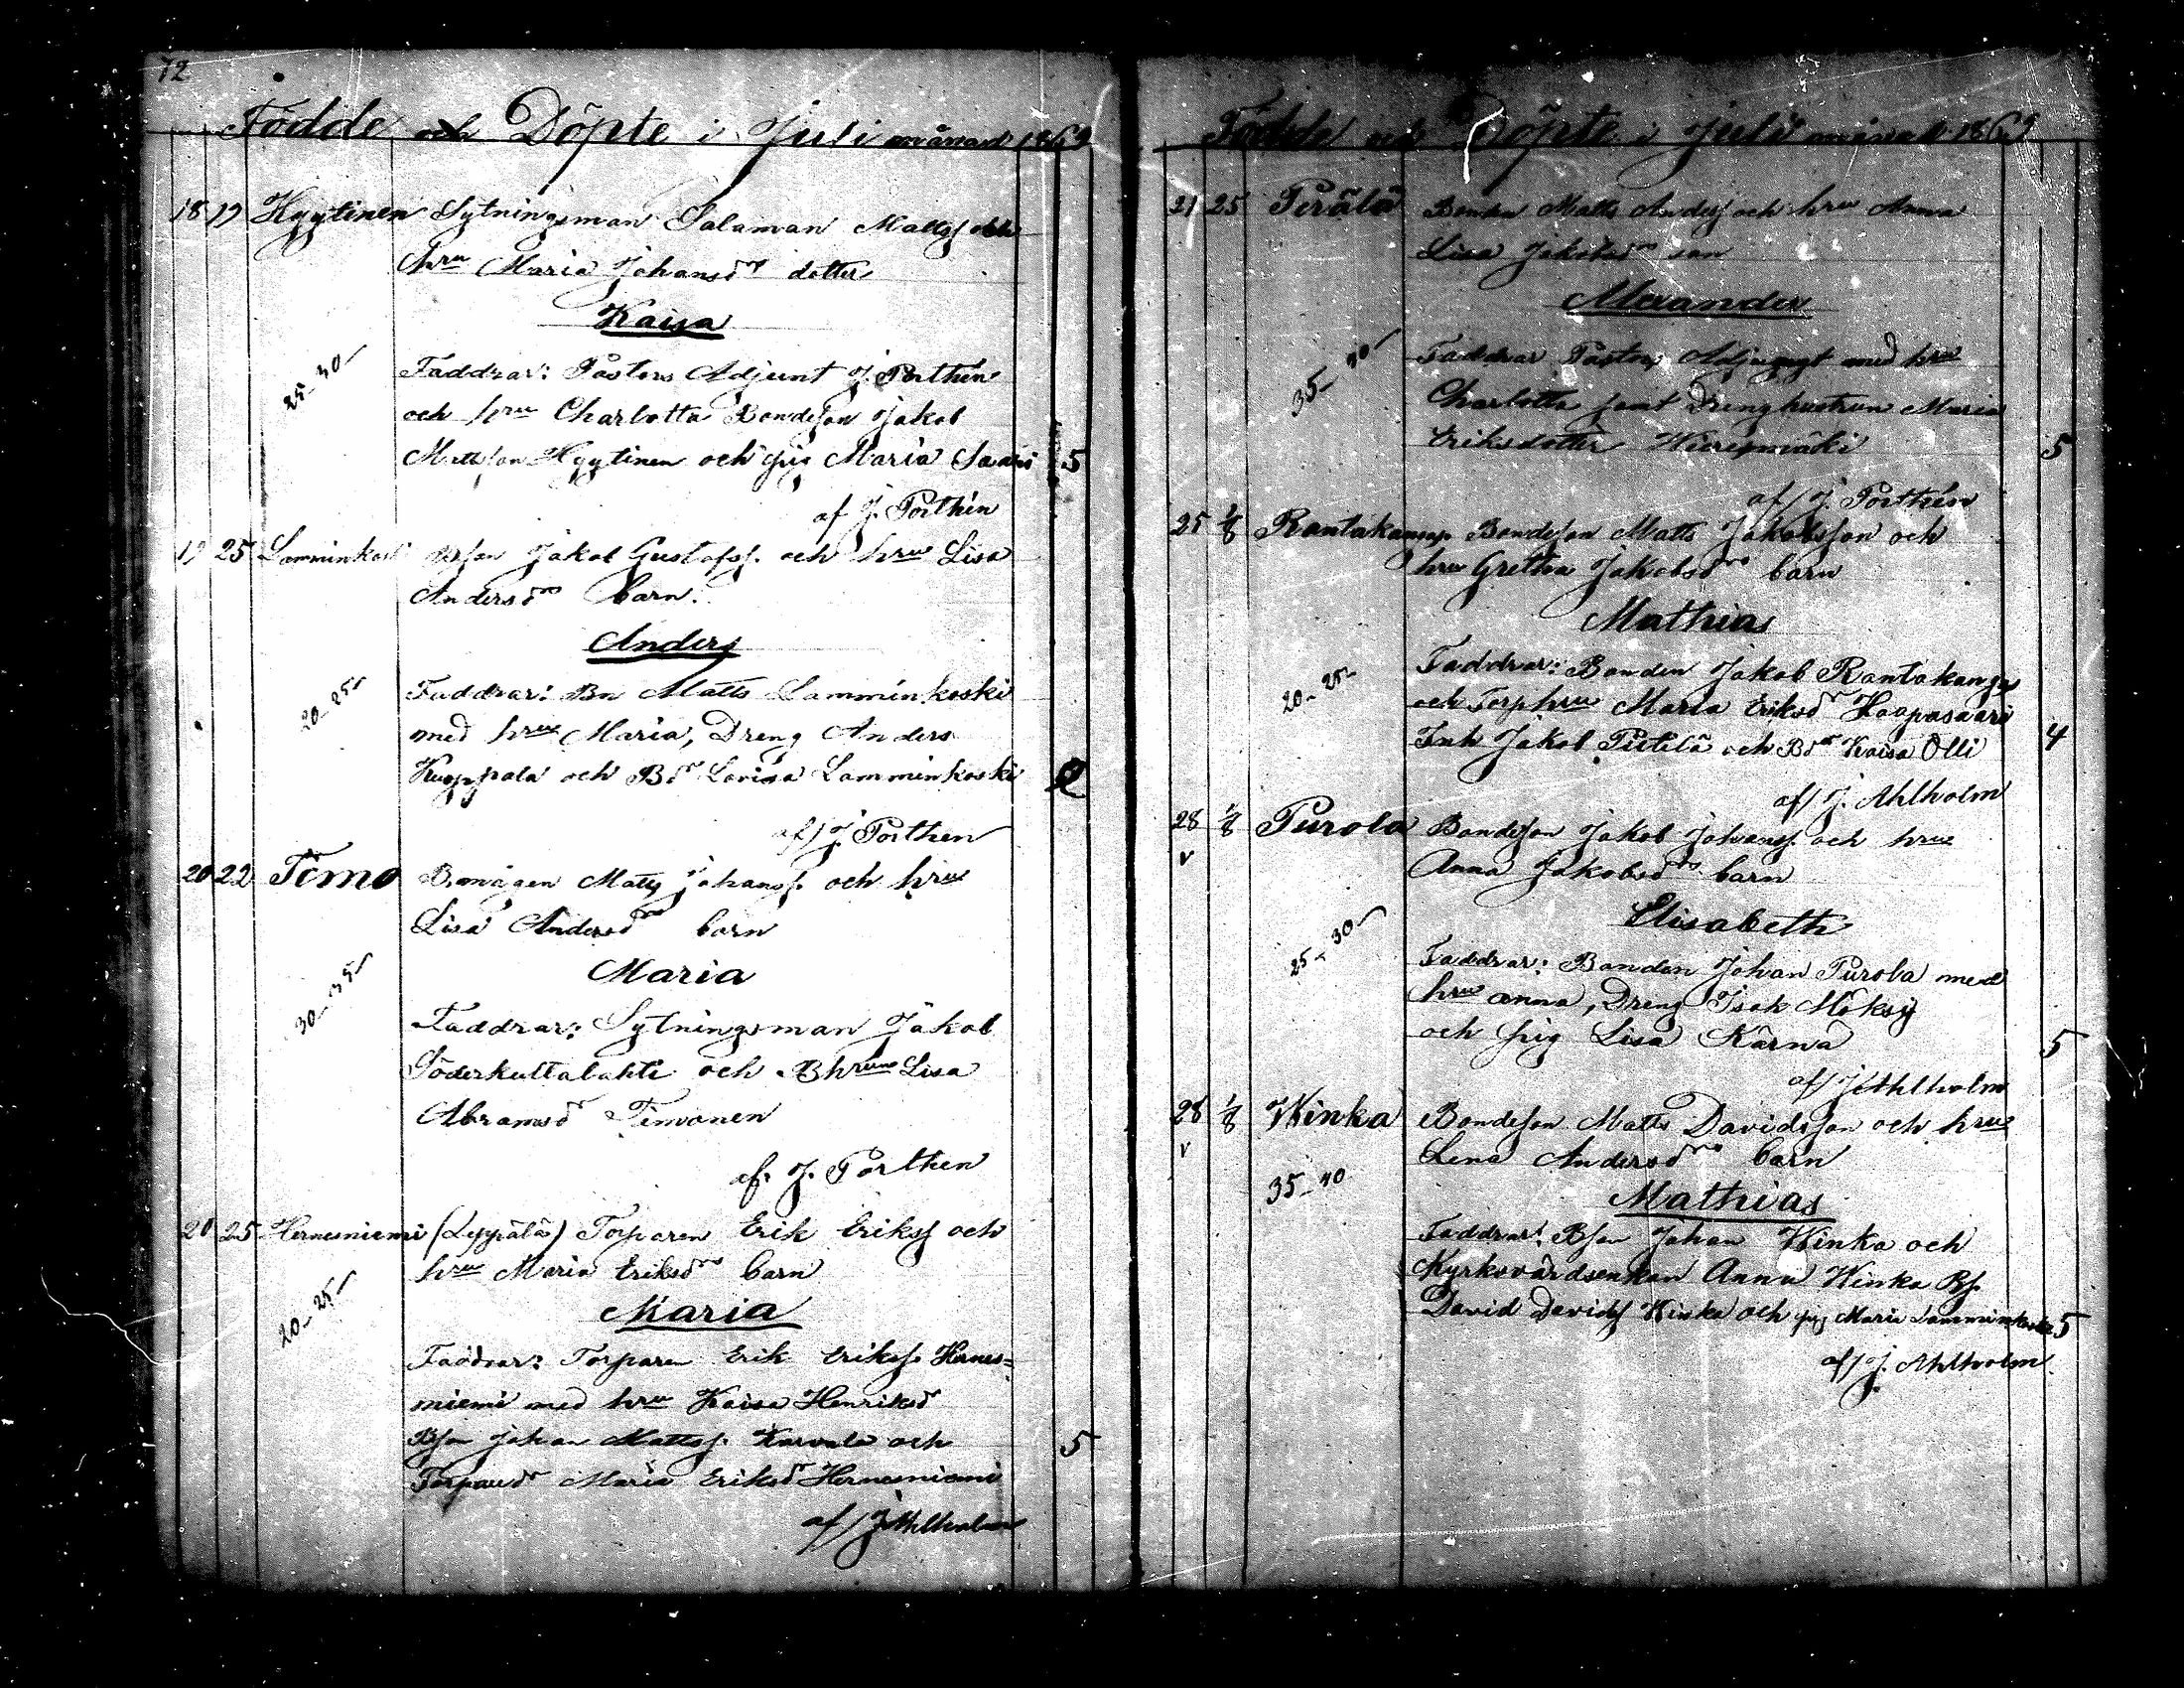 72
Födde och Döpte i Juli månad 1869
18 19 Hyytinen Sytningsman Salaman Mattss och
hru Maria Johansdr dotter
Kaisa
25-30-
Faddrar: Pastors Adjunt J. Porthen
och hru Charlotta Bondeson Jakob
Mattsson Hyytinen och pig Maria Saari 5
af J. Porthén
19 25 Laminkoski Bson Jakob Gustafss. och hru Lisa
Andersdrs barn.
Anders
20-25-
Faddrar: Bn Matts Lamminkoski
med hru Maria, Dreng Anders
Kuoppala och Bdr Lovisa Lamminkoski
af J. Porthen
20 22 Timo Bmågen Matts Johanss. och hru
Lisa Andersdrs barn
Maria
30-35-
Faddrar: Sytningsman Jakob
Söderkultalahti och Bhrun Lisa
Abramsdr Timonen
af. J. Porthen
20 25 Hernesniemi (Leppälä) Torparen Erik Erikss och
hru Maria Eriksdrs barn
Maria
20-25-
Faddrar: Torparen Erik Erikss. Hernes=
niemi med hru Kaisa Henriksdr
Bson Johan Mattss. Karvala och 5
Torparedr Maria Eriksdr Hernesniemi
af J. Ahlholm
Födde och Döpte i Juli månad 1869
21 25 Perälä Bonden Matts Anderss och hru Anna
Lisa Jakobsdrs son
Alexander
35-40-
Faddrar Pastors Adjungt med hru
Charlotta samt Dreng hustrun Maria
Eriksdotter Wieresmäki 5
af J. Porthén
25 1/8 Rantakangas Bondeson Matts Jakobsson och
hru Gretha Jakobsdrs barn
Mathias
20-25-
Faddrar: Bonden Jakob Rantakangas
och Torphru Maria Eriksdr Haapasaari
Inh Jakob Pietilä och Bdr Kaisa Olli 4
af J. Ahlholm
28 1/8 Purola Bondeson Jakob Johanss. och hru
v Anna Jakobsdrs barn
Elisabeth
25-30-
Faddrar: Bonden Johan Purola med
hru Anna, Dreng Isak Möksy
och pig Lisa Kärnä 5
af J. Ahlholm
28 1/8 Winka Bondeson Matts Davidsson och hru
v Lena Andersdrs barn
35-40
Mathias
Faddrar: Bson Johan Winka och
Kyrkovärdsenkan Anna Winka Bs.
David Davidss Winka och pig Maria Lamminkoski 5
af J. Ahlholm